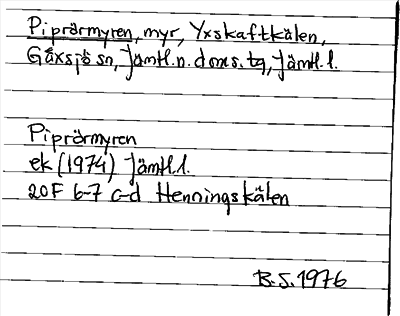 Piprörmyren, myr, Yxskaftkälen,
Gåxsjö sn, Jämtl.n.doms.tg, Jämtl.l.
Piprörmyren
ek (1974) Jämtl.l.
20F 6-7 c-d Henningskälen
B.S.1976